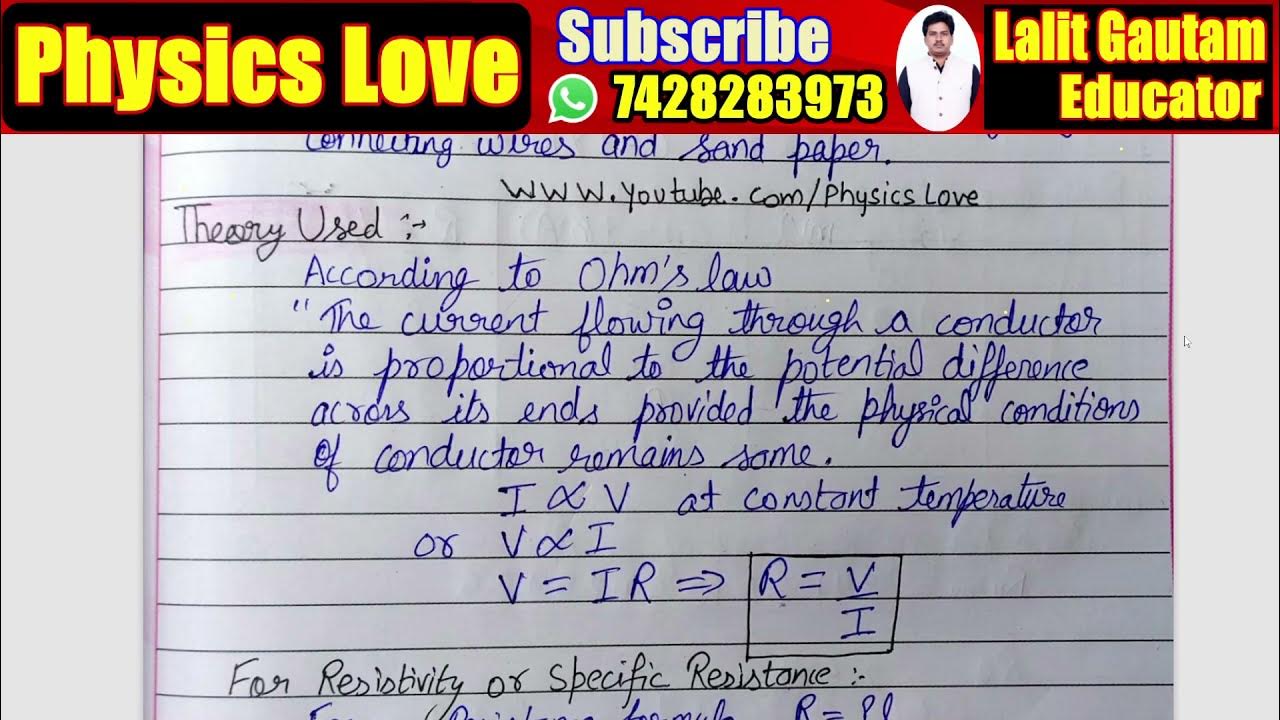 Physics Love
Subscribe
7428283973
Lalit Gautam
Educator
connecting wires and sand paper.
WWW.Youtube.com/Physics Love
Theory Used :-
According to Ohm's law
"The current flowing through a conductor
is proportional to the potential difference
across its ends provided the physical conditions
of conductor remains same.
I ∝ V at constant temperature
or V ∝ I
V = IR ⇒ R = V/I
For Resistivity or Specific Resistance :-
R = ρl